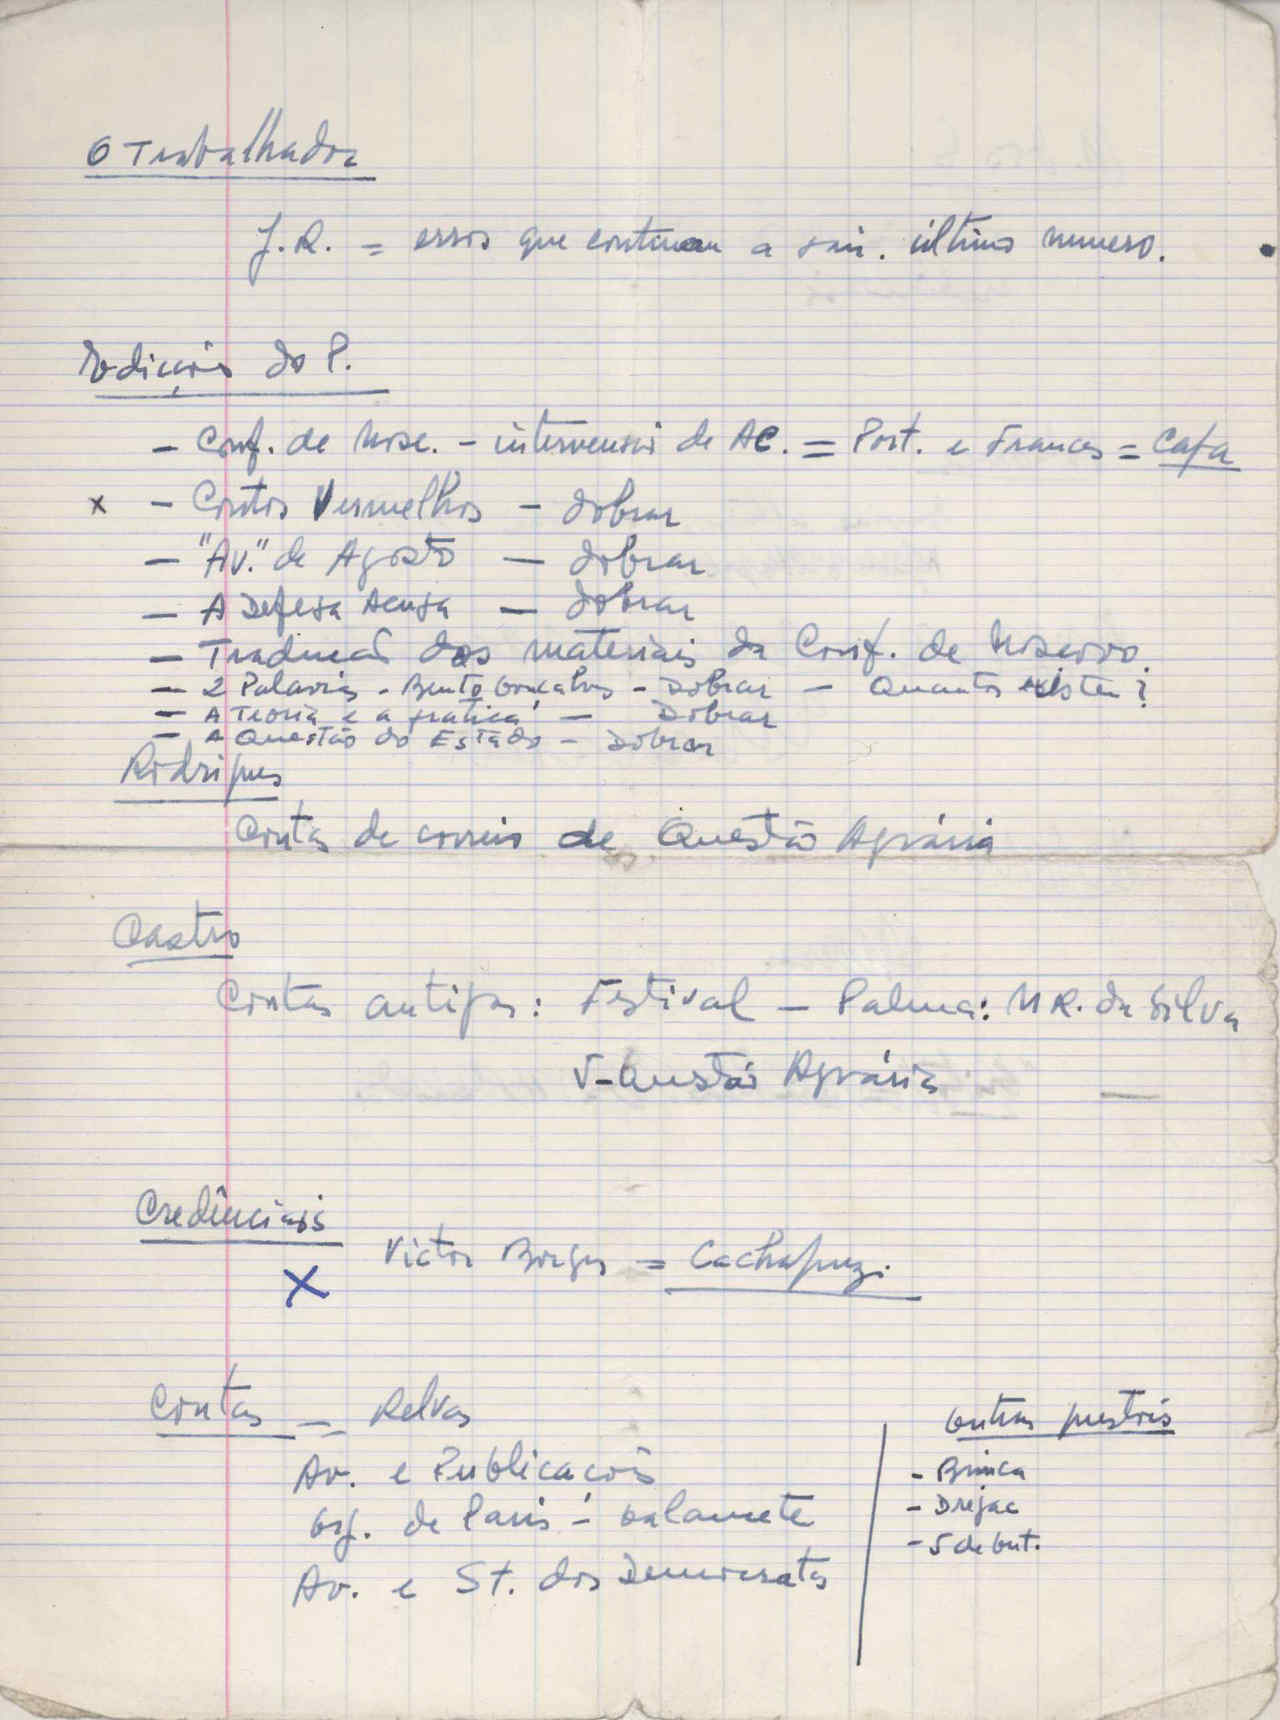 O Trabalhador
J.R. = erros que continuam a sair. último numero.
Edições do P.
- Conf. de Mosc. - intervensõi de AC. = Port. e Frances = Capa
x - Contos Vermelhos - dobrar
- "Av." de Agosto - dobrar
- A Defesa Acusa - dobrar
- Tradução dos materiais da Conf. de Moscovo.
- 2 Palavras - Bento Gonçalves - Dobrar - Quantos existem?
- A Teoria e a pratica - Dobrar
- A Questão do Estado - Dobrar
Rodrigues
Contas de correio de Questão Agrária
Castro
Contas antigas: Festival - Palma: M R. da Silva
V-Questão Agrária
Credênciais
X Victor Borges = Cachapuz.
Contas - Relvas
Av. e Publicacões
Org. de Paris -
Av. e St. dos Democratas
Outras questões
- Brinca
- Drejac
- 5 de Out.